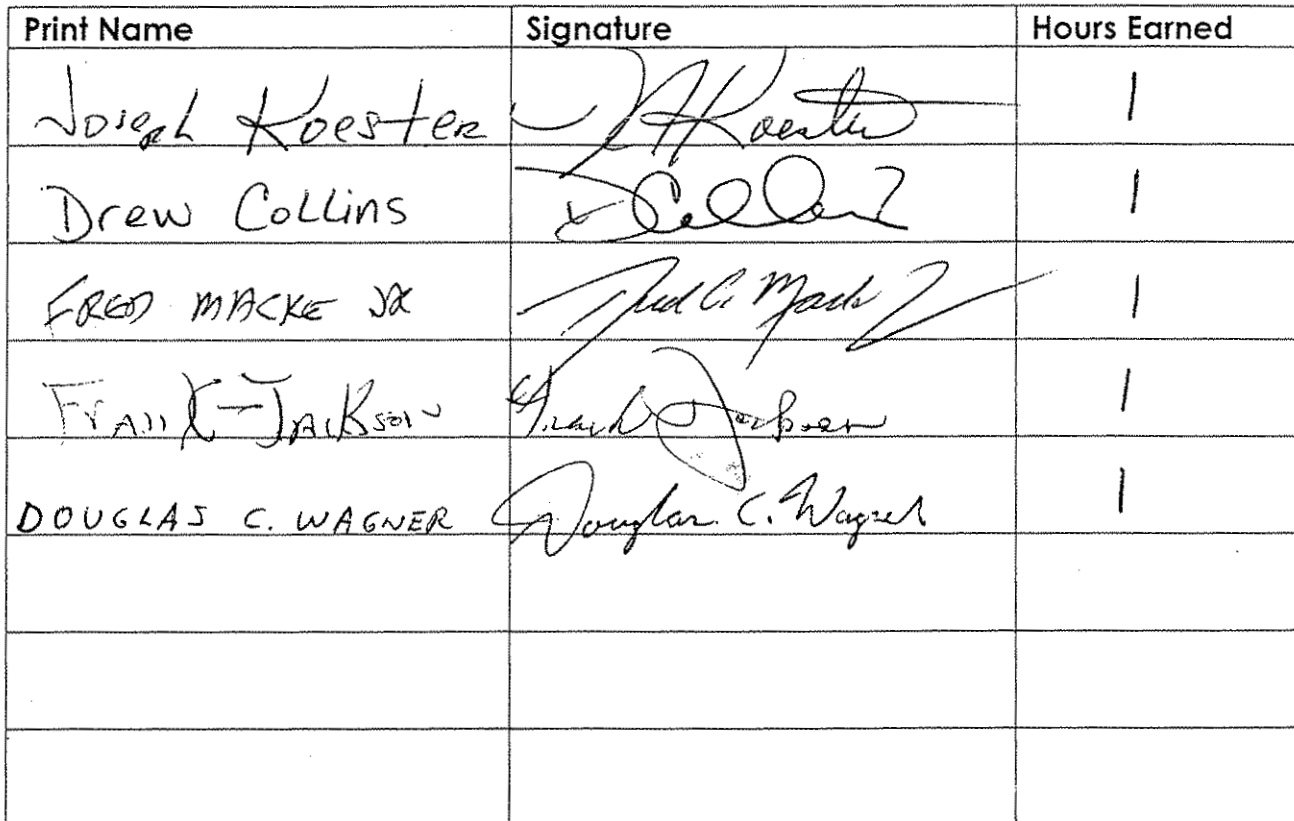 Print Name Signature Hours Earned
Joseph Koester JAKoester 1
Drew Collins D Collins 1
FRED MACKE JR Fred C. Macke Jr 1
Frank Jackson Frank Jackson 1
DOUGLAS C. WAGNER Douglas C. Wagner 1